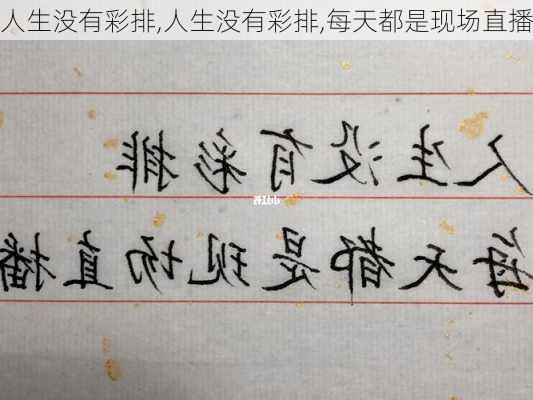 人生没有彩排,人生没有彩排,每天都是现场直播
人生没有彩排
每天都是现场直播